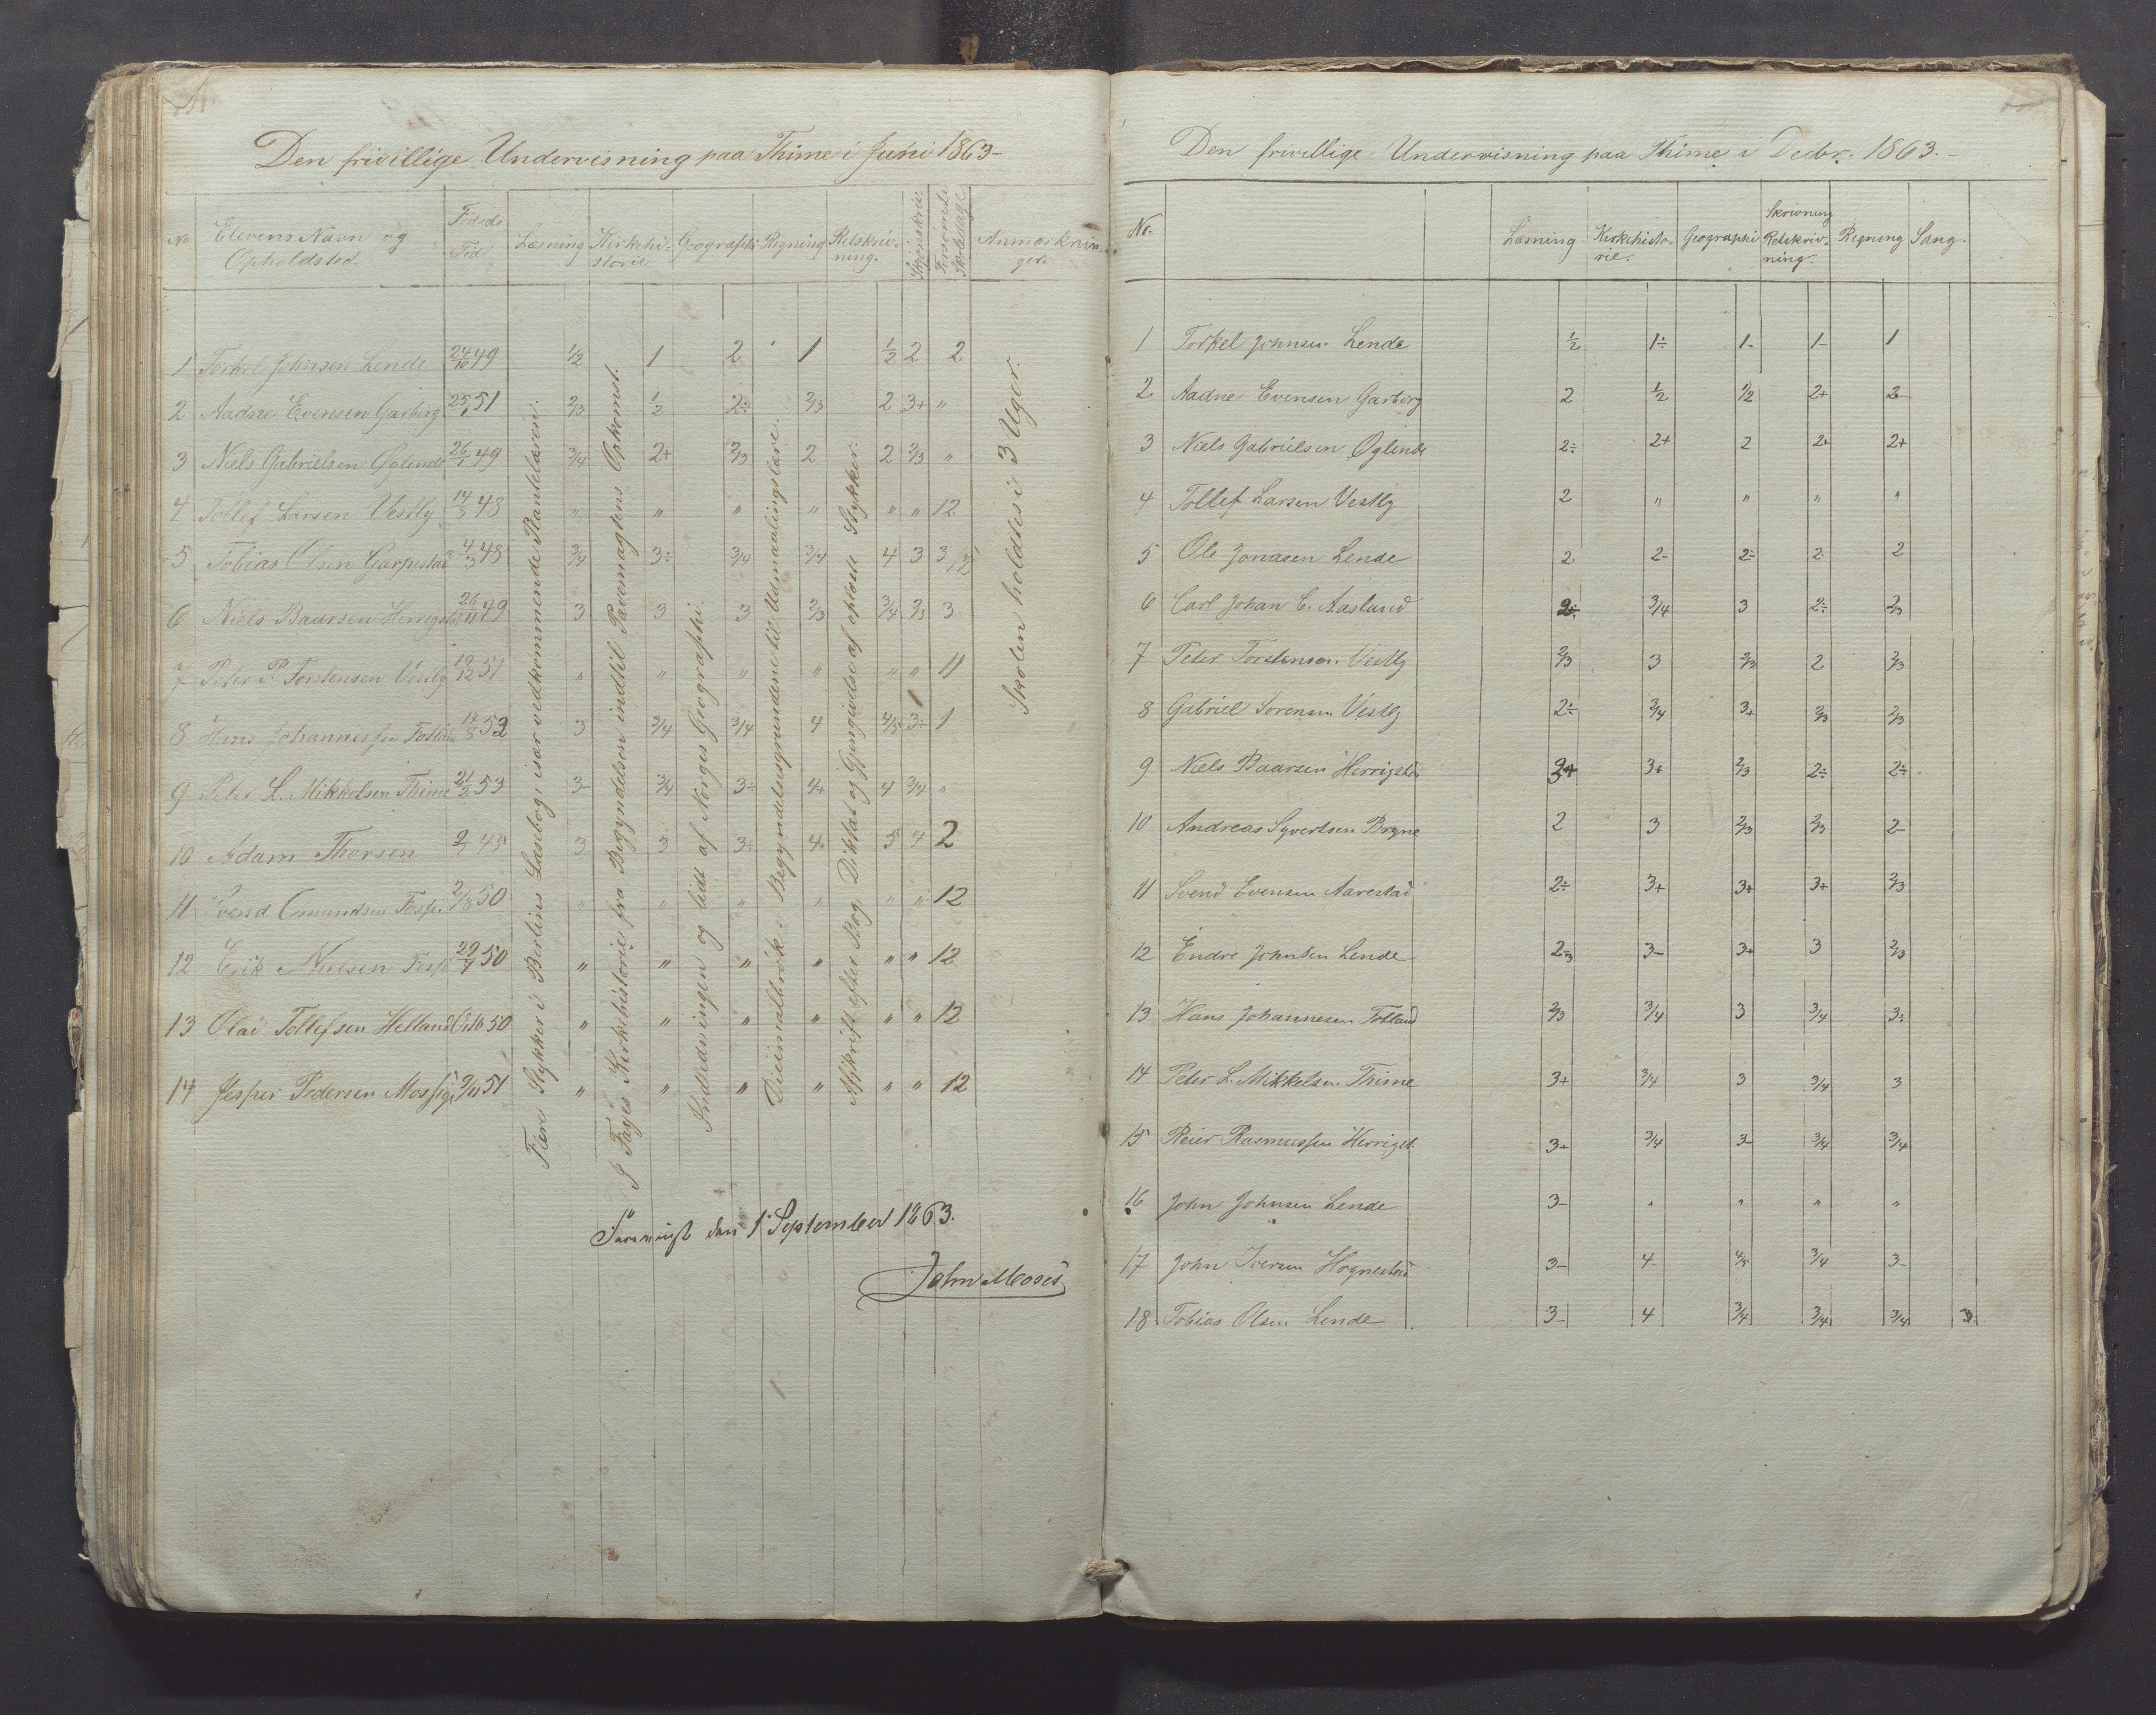 Den frivillige Undervisning paa Thime i Juni 1863-
No Elevens Navn og Opholdsted. Fødsels Tid Læsning Kirkehistorie Geographi Regning Retskrivning. Skjønskriv. Forsømte Skoledage Anmærkninger.
1 Torkel Johnsen Lende 24/10 49 1/2 1 2 1 1/2 2 2
2 Aadne Evensen Garborg 25/1 51 2/3 1/2 2÷ 2/3 2 3+ "
3 Niels Gabrielsen Øglende 26/1 49 3/4 2+ 2/3 2 2 2/3 "
4 Tollef Larsen Vestly 14/3 48 " " " " " " 12
5 Tobias Olsen Garpestad 4/3 48 3/4 3÷ 3/4 3/4 4 3 3
6 Niels Baarsen Herrigstad 26/11 49 3 3 3 2/3 3/4 2/3 3
7 Peter P. Torstensen Vestly 19/12 51 " " " " " " 11
8 Hans Johannessen Fotland 52 3 3/4 3/4 4 4/5 3÷ 1
9 Peter L. Mikkelsen Thime 21/2 53 3- 3/4 3÷ 4+ 4 3/4 "
10 Adam Thorsen 3 3 3÷ 4 5 4 2
11 Svend Omundsen 2/8 50 " " " " " " 12
12 Erik Nielsen 29/7 50 " " " " " " 12
13 Olai Tollefsen Helland 50 " " " " " " 12
14 Jesper Pedersen Mossige 51 " " " " " " 12
Flere Stykker i Berlins Læsebog, især vedkommende Plantelæren.
I Fayes Kirkehistorie fra Begyndelsen indtil Pavemagtens Opkomst.
Indledningen og lidt af Norges Geographi.
Decimalbrøk. Begyndelsesgrundene til Udmaalingslære.
Afskrift efter Bog. Diktat og Gjengivelse af oplæste Stykker.
Skolen holdtes i 3 Uger.
den 1. September 1863.
John Moses
Den frivillige Undervisning paa Thime i Decbr. 1863.-
No. Læsning Kirkehistorie. Geographi Skrivning Retskrivning. Regning Sang.
1 Torkel Johnsen Lende 1/2 1÷ 1- 1- 1
2 Aadne Evensen Garborg 2 1/2 1/2 2+ 2-
3 Niels Gabrielsen Øglende 2÷ 2+ 2 2+ 2+
4 Tollef Larsen Vestly 2 " " " "
5 Ole Jonasen Lende 2 2- 2÷ 2 2
6 Carl Johan C. Aaslund 2÷ 3/4 3 2÷ 2/3
7 Peter Torstensen Vestly 2/3 3 2/3 2 2/3
8 Gabriel Sørensen Vestly 2÷ 3/4 3+ 2/3 2/3
9 Niels Baarsen Herrigstad 3+ 3+ 2/3 2÷ 2÷
10 Andreas Syvertsen Bryne 2 3 2/3 2/3 2-
11 Svend Evensen Aarestad 2÷ 3+ 3+ 3+ 2/3
12 Endre Johnsen Lende 2/3 3- 3+ 3 2/3
13 Hans Johannesen Fotland 2/3 3/4 3 3/4 3÷
14 Peter L. Mikkelsen Thime 3+ 3/4 3 3/4 3
15 Reier Rasmussen Herrigst. 3+ 3/4 3- 3/4 3/4
16 John Johnsen Lende 3- " " " "
17 John Iversen Hognestad 3- 4 4/5 3/4 3-
18 Tobias Olsen Lende 3- 4 3/4 3/4 3/4 3